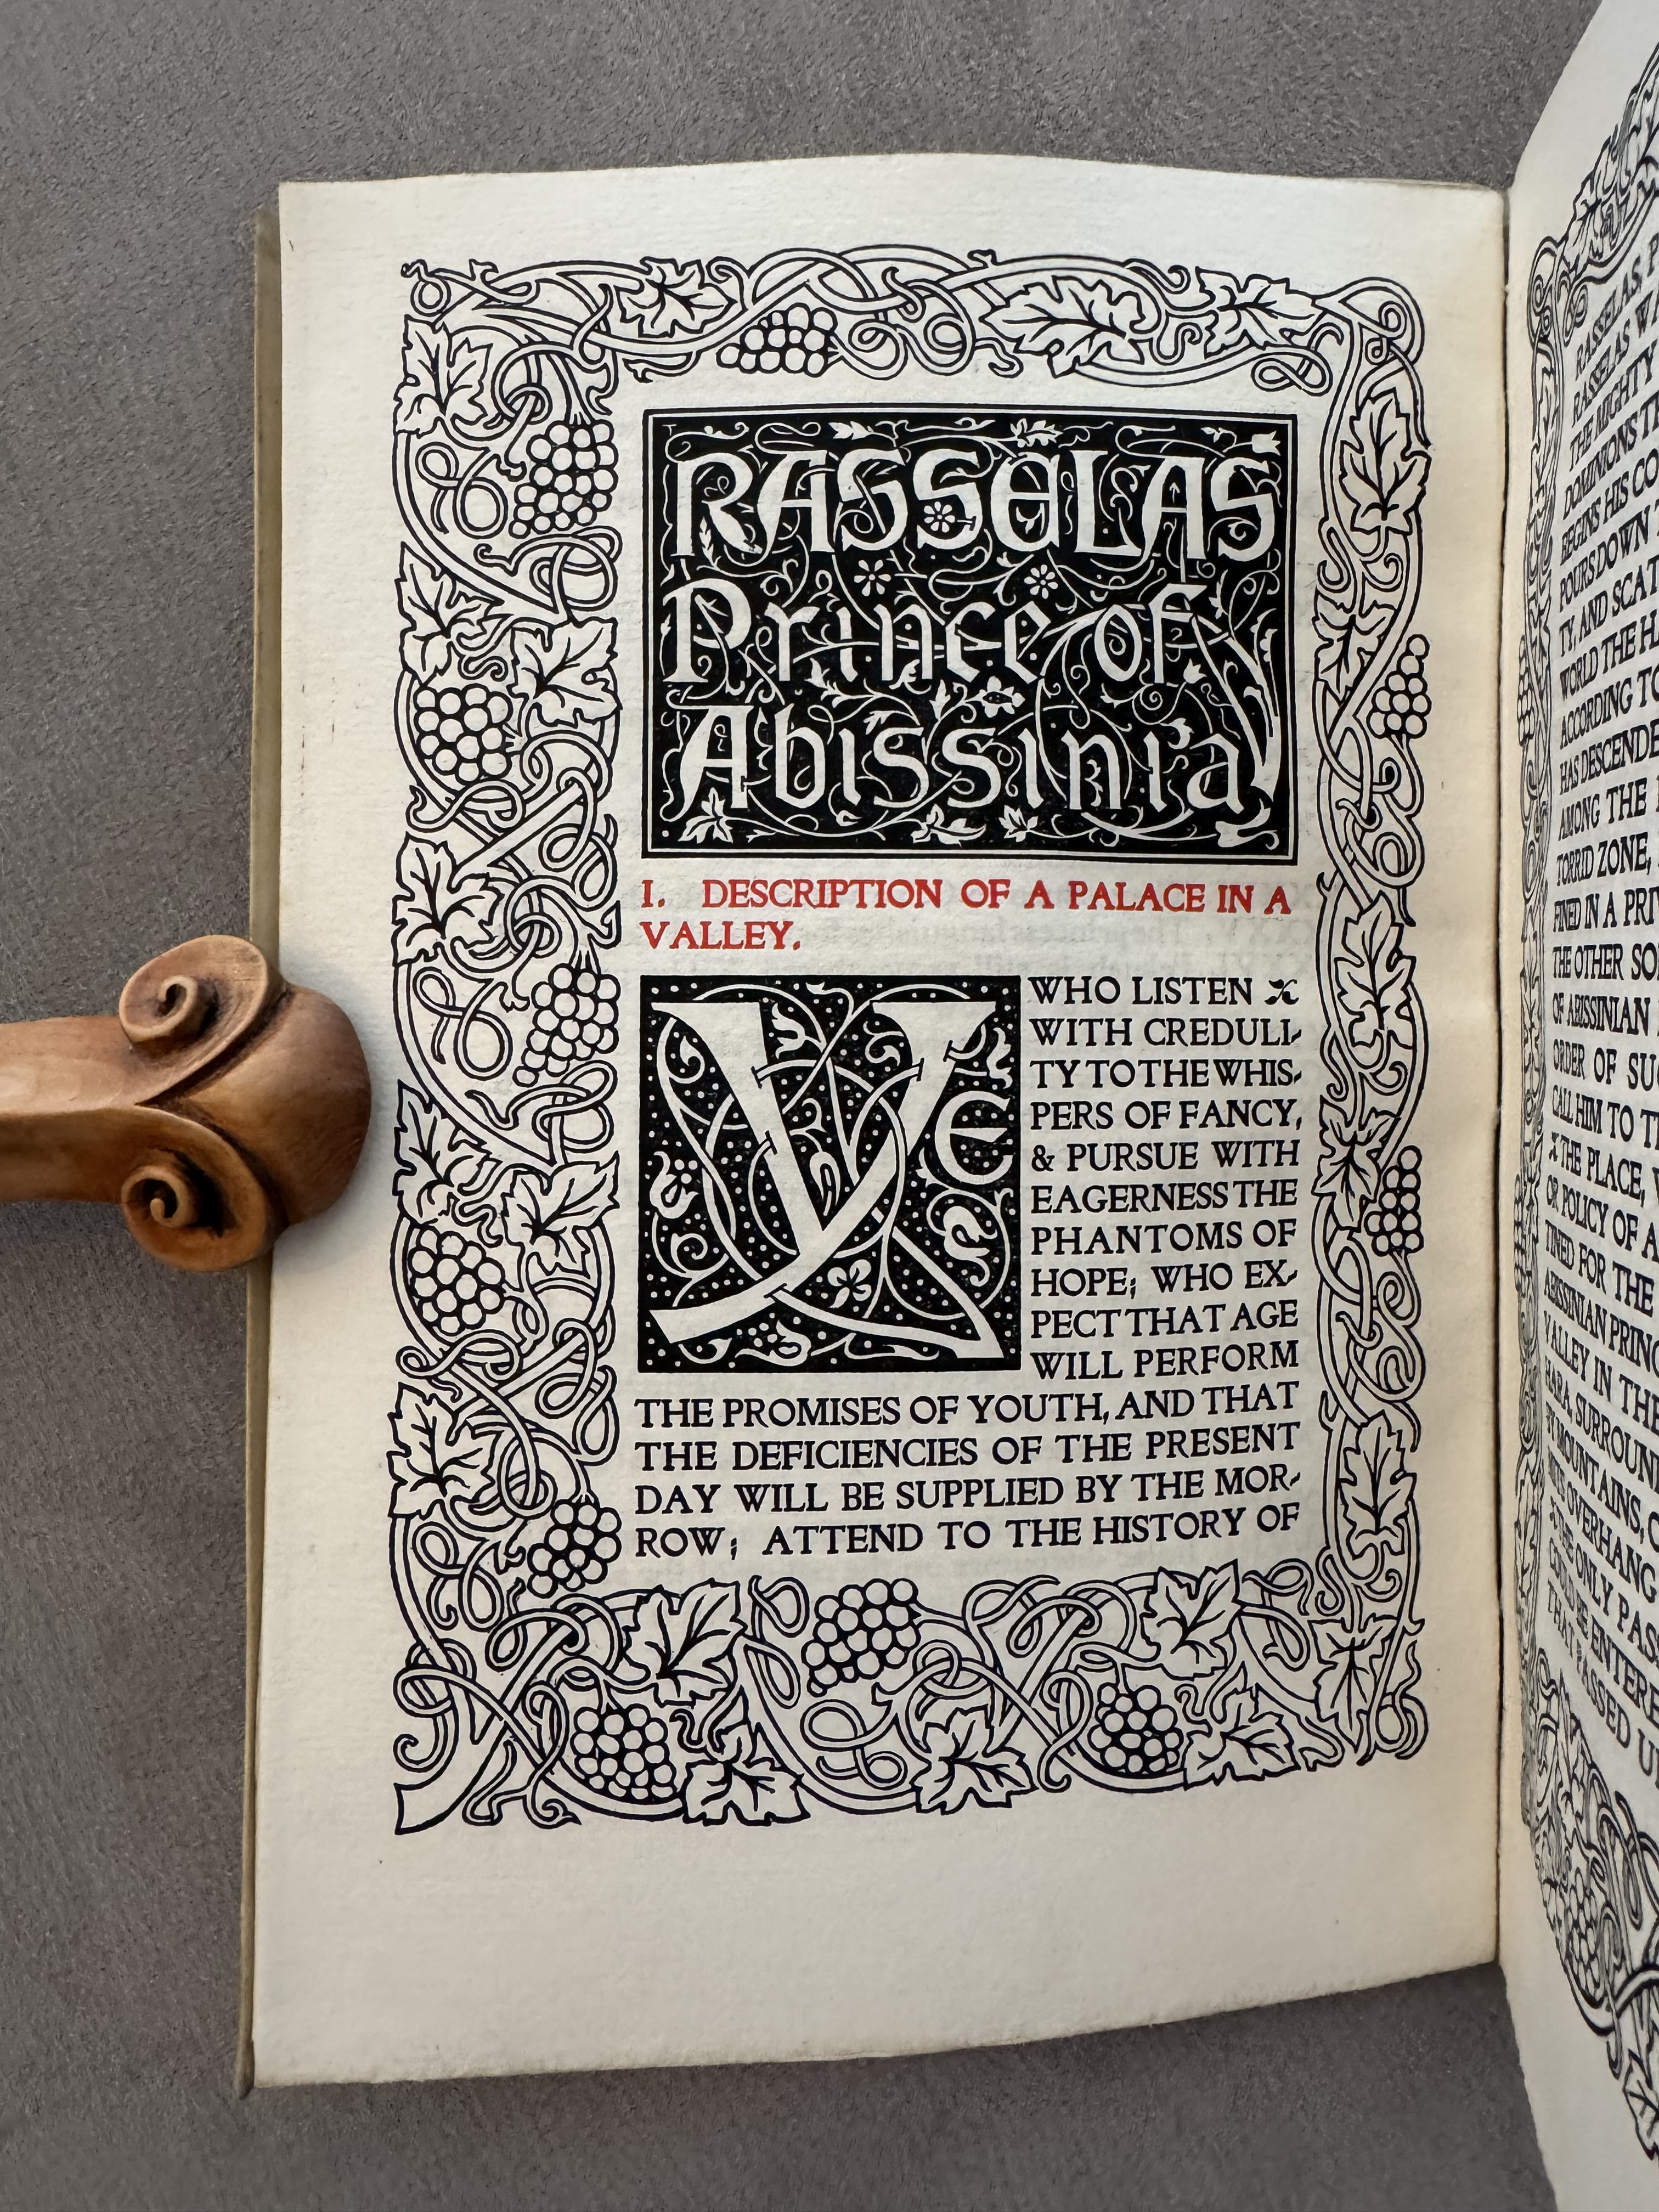 RASSELAS
Prince of
Abissinia
I. DESCRIPTION OF A PALACE IN A
VALLEY.
YE WHO LISTEN
WITH CREDULI-
TY TO THE WHIS-
PERS OF FANCY,
& PURSUE WITH
EAGERNESS THE
PHANTOMS OF
HOPE; WHO EX-
PECT THAT AGE
WILL PERFORM
THE PROMISES OF YOUTH, AND THAT
THE DEFICIENCIES OF THE PRESENT
DAY WILL BE SUPPLIED BY THE MOR-
ROW; ATTEND TO THE HISTORY OF
RASSELAS,
RASSELAS
THE MIGHTY
DOMINIONS
BEGINS HIS
POURS DOWN
TY, AND
WORLD THE
ACCORDING TO
HAS
AMONG THE
TORRID ZONE,
FINED IN A
THE OTHER
OF ABISSINIAN
ORDER OF
CALL HIM TO
THE PLACE,
OR POLICY OF
TINED FOR THE
ABISSINIAN
VALLEY IN THE
HARA,
TY MOUNTAINS,
OVERHANG
THE ONLY
COULD BE
THAT PASSED